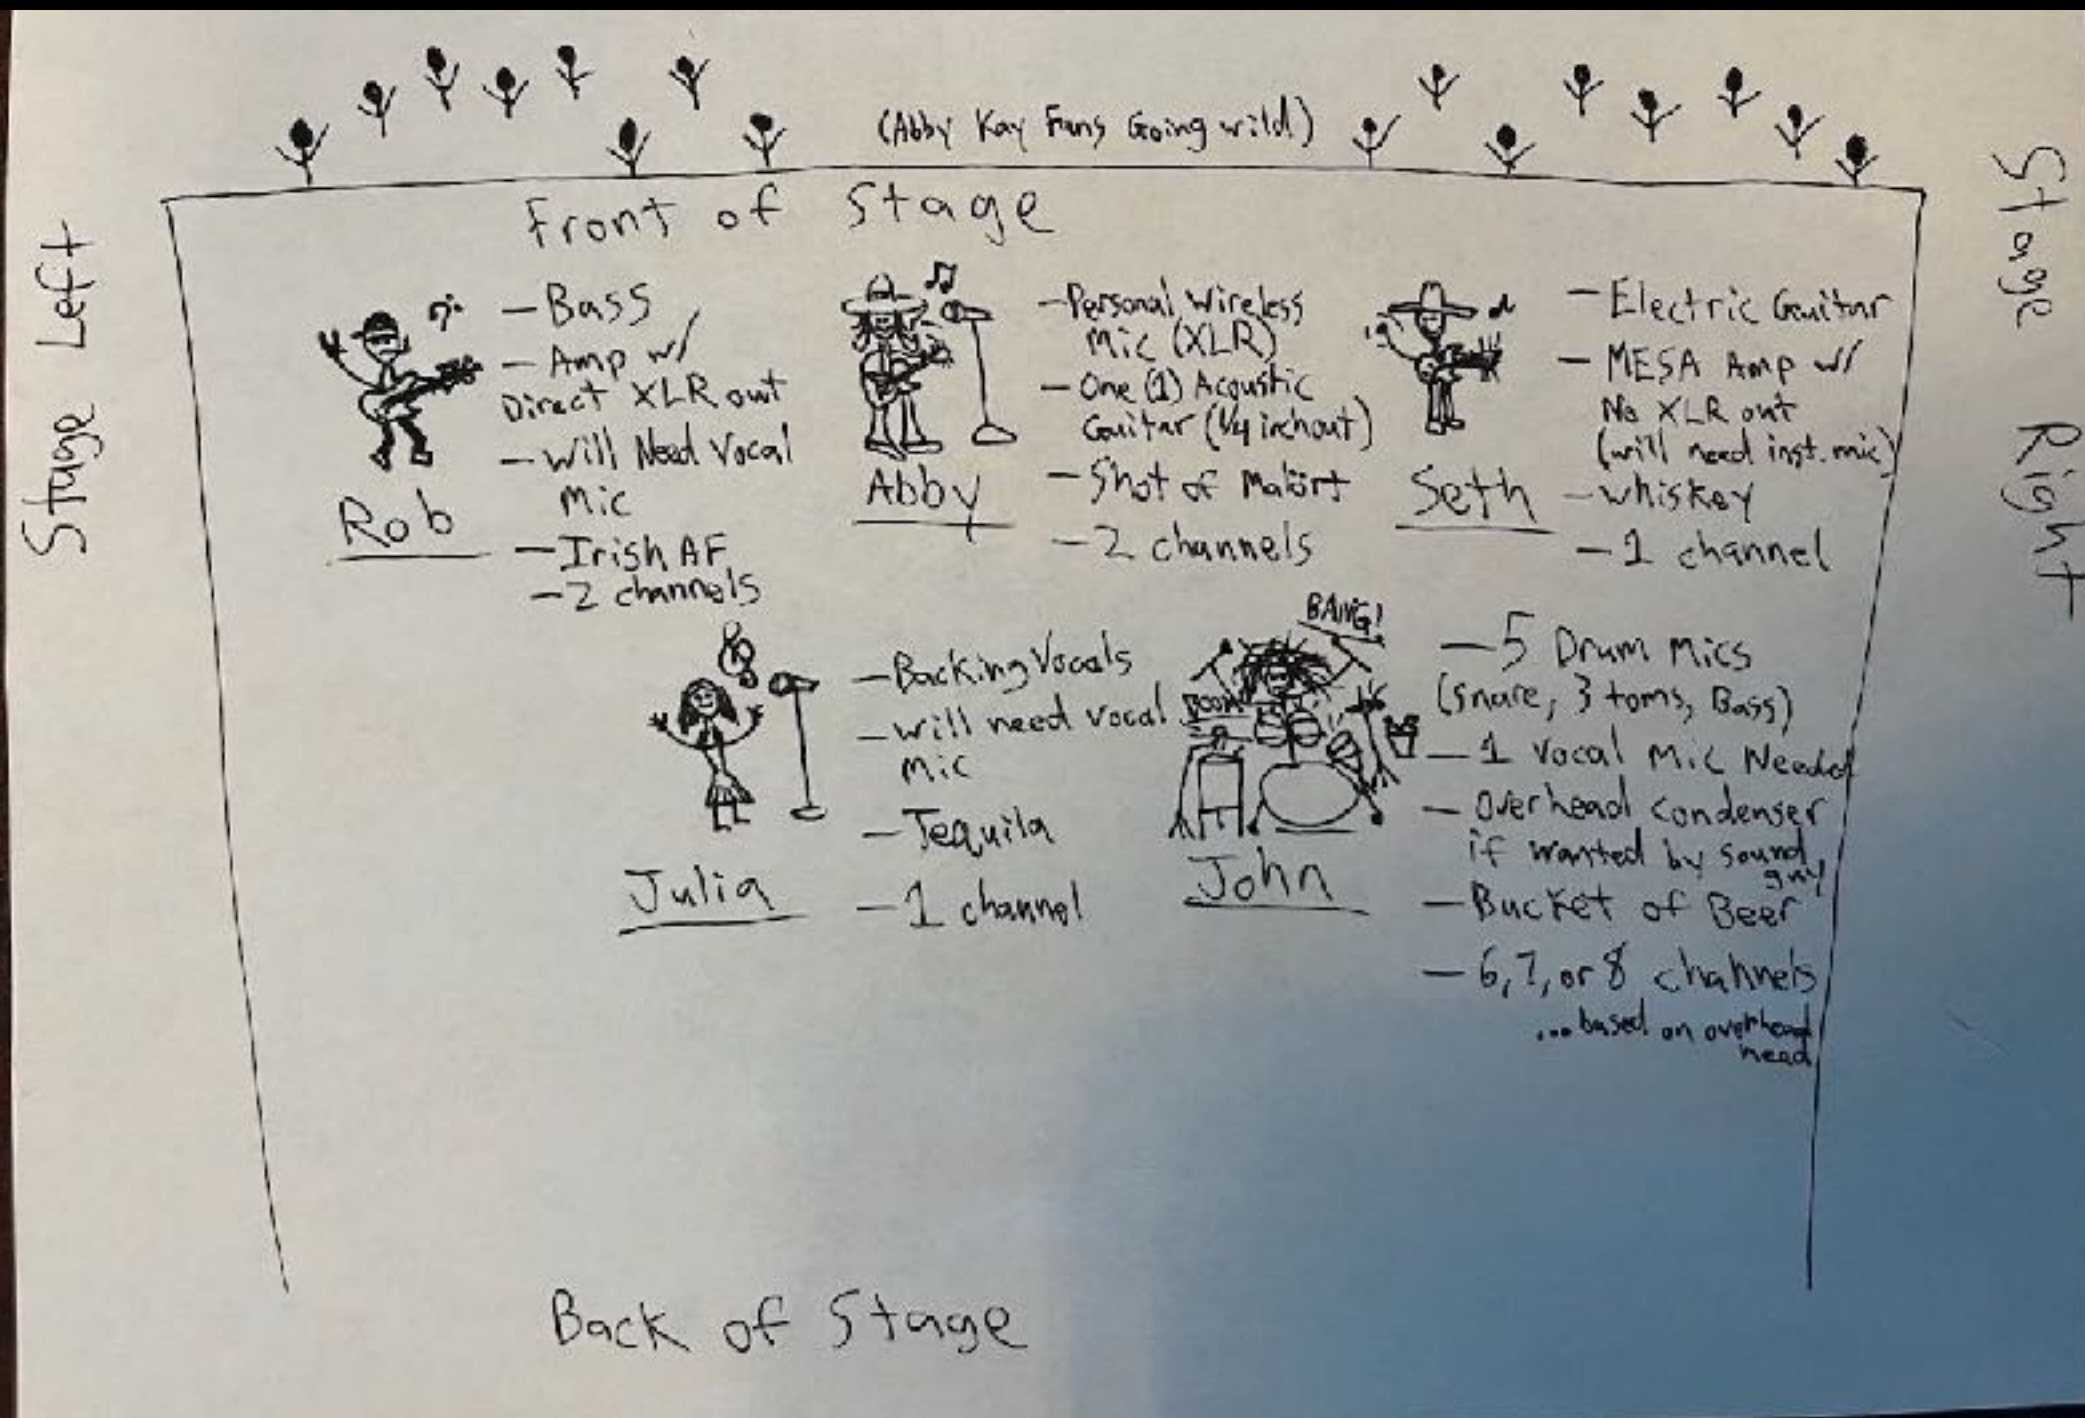 (Abby Kay Fans Going wild)
Front of Stage
Stage Left
Stage Right
- Bass
- Amp w/
Direct XLR out
- Will Need Vocal
Mic
- Irish AF
- 2 channels
Rob
- Personal Wireless
Mic (XLR)
- One (1) Acoustic
Guitar (1/4 inch out)
- Shot of Malört
- 2 channels
Abby
- Electric Guitar
- MESA Amp w/
No XLR out
(will need inst. mic)
- Whiskey
- 1 channel
Seth
- Backing Vocals
- will need vocal
mic
- Tequila
- 1 channel
Julia
BANG!
BOOM
- 5 Drum Mics
(snare, 3 toms, Bass)
- 1 Vocal Mic Needed
- Overhead condenser
if wanted by sound
guy
- Bucket of Beer
- 6, 7, or 8 channels
...based on overhead
need
John
Back of Stage